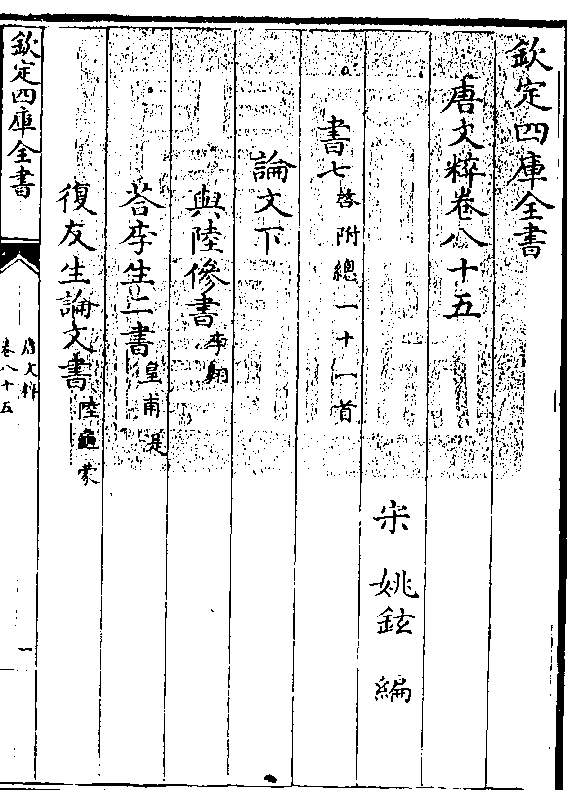 欽定四庫全書
唐文粹卷八十五
宋 姚鉉 編
書七啓附總一十一首
論文下
與陸傪書李翺
荅李生二書皇甫湜
復友生論文書陸龜蒙
欽定四庫全書
唐文粹
卷八十五
一